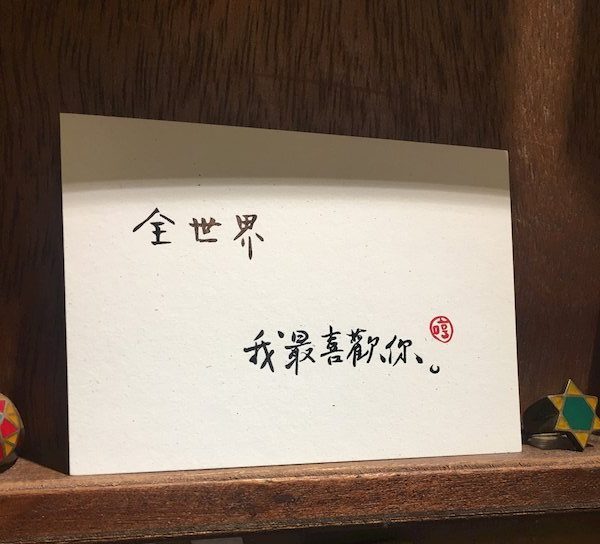 全世界
我最喜歡你。
哼